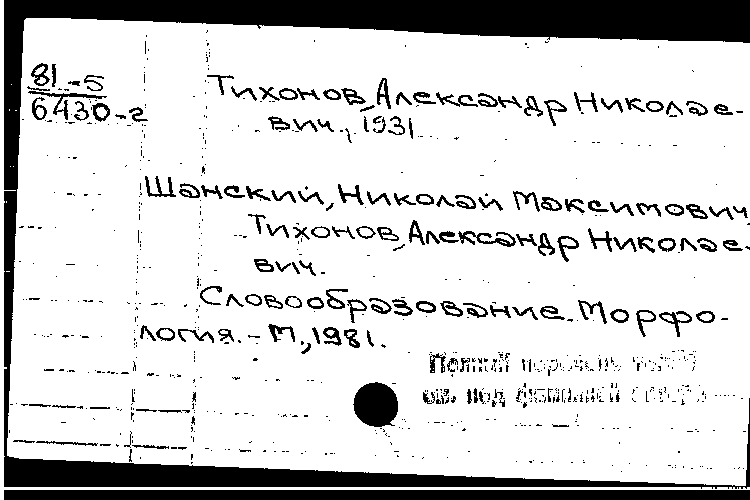 81-5
6430-2
Тихонов, Александр Николае-
вич, 1931
Шанский, Николай Максимович,
Тихонов, Александр Николае-
вич.
Словообразование. Морфо-
логия. - М., 1981.
Полный перечень
см. под фамилией